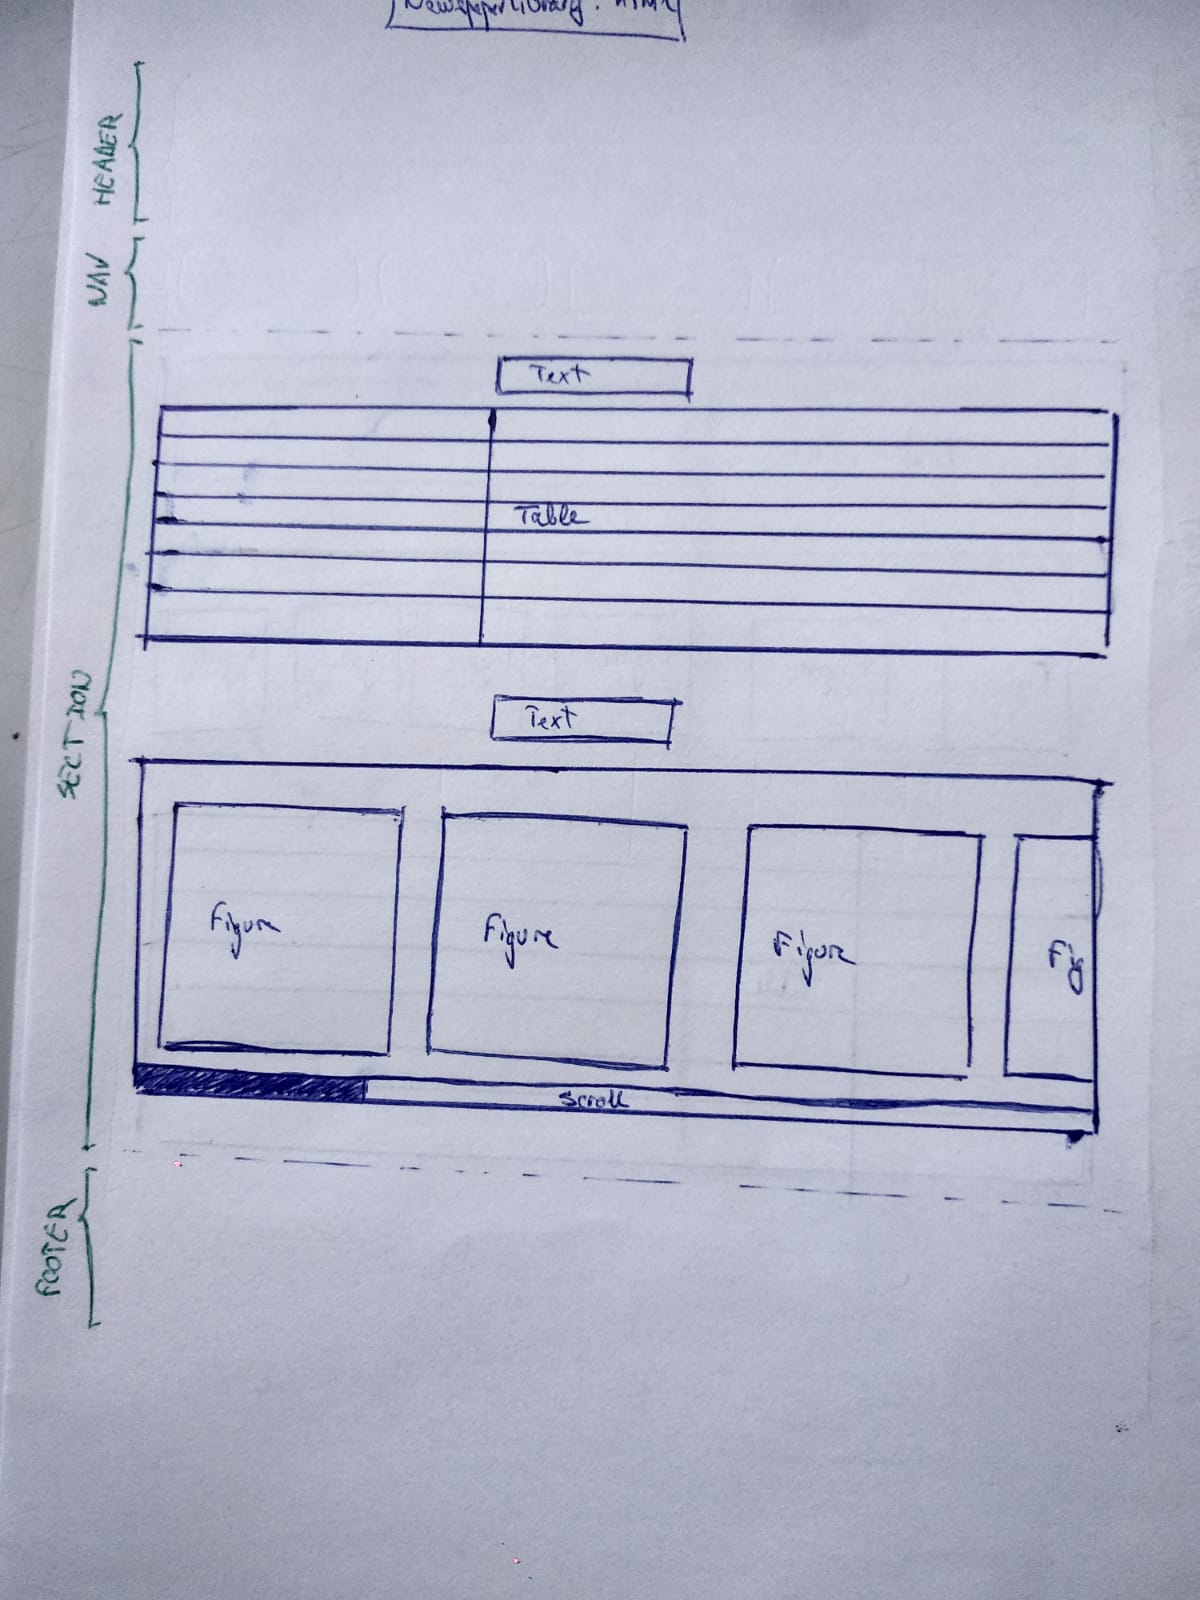 NewspaperLibrary.html
HEADER
NAV
Text
Table
SECTION
Text
Figure
Figure
Figure
Fig
Scroll
FOOTER